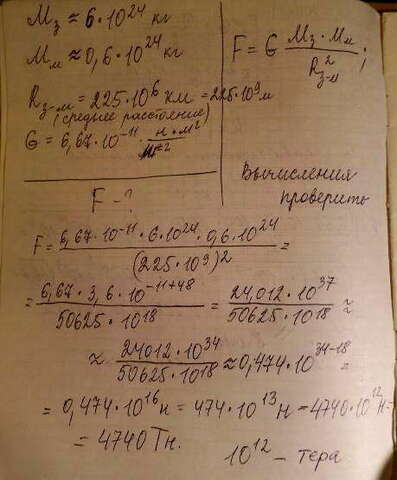 Mз ≈ 6·10²⁴ кг
Mм ≈ 0,6·10²⁴ кг
Rз-м = 225·10⁶ км = 225·10⁹ м
(среднее расстояние)
G = 6,67·10⁻¹¹ · Н·м²/кг²
F - ?
F = G Mз·Mм / R²з-м ;
Вычисления
проверить
F = 6,67·10⁻¹¹·6·10²⁴·0,6·10²⁴ / (225·10⁹)² =
= 6,67·3,6·10⁻¹¹⁺⁴⁸ / 50625·10¹⁸ = 24,012·10³⁷ / 50625·10¹⁸ ≈
≈ 24012·10³⁴ / 50625·10¹⁸ ≈ 0,474·10³⁴⁻¹⁸ =
= 0,474·10¹⁶ н = 474·10¹³ Н = 4740·10¹² Н =
= 4740 Тн.
10¹² - тера